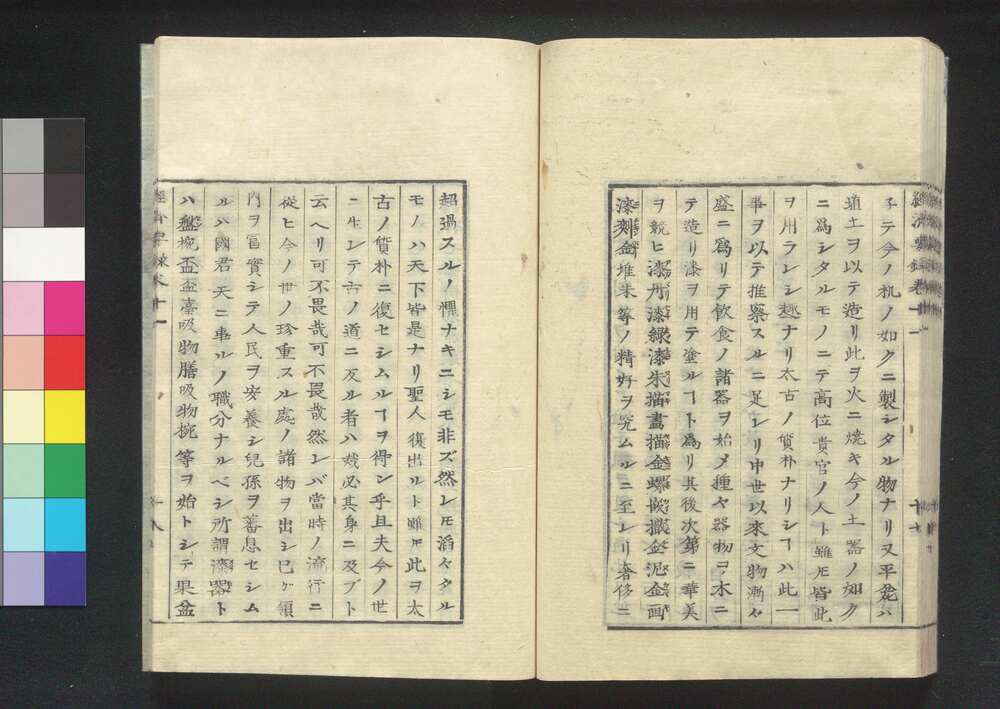 子テ今ノ机ノ如クニ製シタル物ナリ又平瓮ハ
埴土ヲ以テ造リ此ヲ火ニ焼キ今ノ土器ノ如ク
ニ為シタルモノニテ高位貴官ノ人ト雖𪜈皆此
ヲ用ランシ趣ナリ太古ノ質朴ナリシヿハ此一
事ヲ以テ推察スルニ足レリ中世以來文物漸々
盛ニ爲リテ飲食ノ諸器ヲ始メ種々器物ヲ木ニ
テ造リ漆ヲ用テ塗ルヿト爲リ其後次第ニ華美
ヲ競ヒ漆丹漆綠漆朱描畫描金螺嵌撒金泥金画
漆剡金堆朱等ノ精好ヲ究ムルニ至レリ奢侈ニ
超過スルノ懼ナキニシモ非ズ然レ𪜈滔々タル
モノハ天下皆是ナリ聖人復出ルト雖𪜈此ヲ太
古ノ質朴ニ復セシムルヿヲ得ン乎且夫今ノ世
ニ生レテ古ノ道ニ反ル者ハ烖必其身ニ及ブト
云ヘリ可不畏哉可不畏哉然レバ當時ノ流行ニ
從ヒ今ノ世ノ珍重スル處ノ諸物ヲ出シ已ケ領
内ヲ富實シテ人民ヲ安養シ兒孫ヲ蕃息セシム
ルハ國君ノ天ニ事ルノ職分ナルベシ所謂漆器ト
ハ盤椀盃盃臺吸物膳吸物椀等ヲ始トシテ果盆
十八